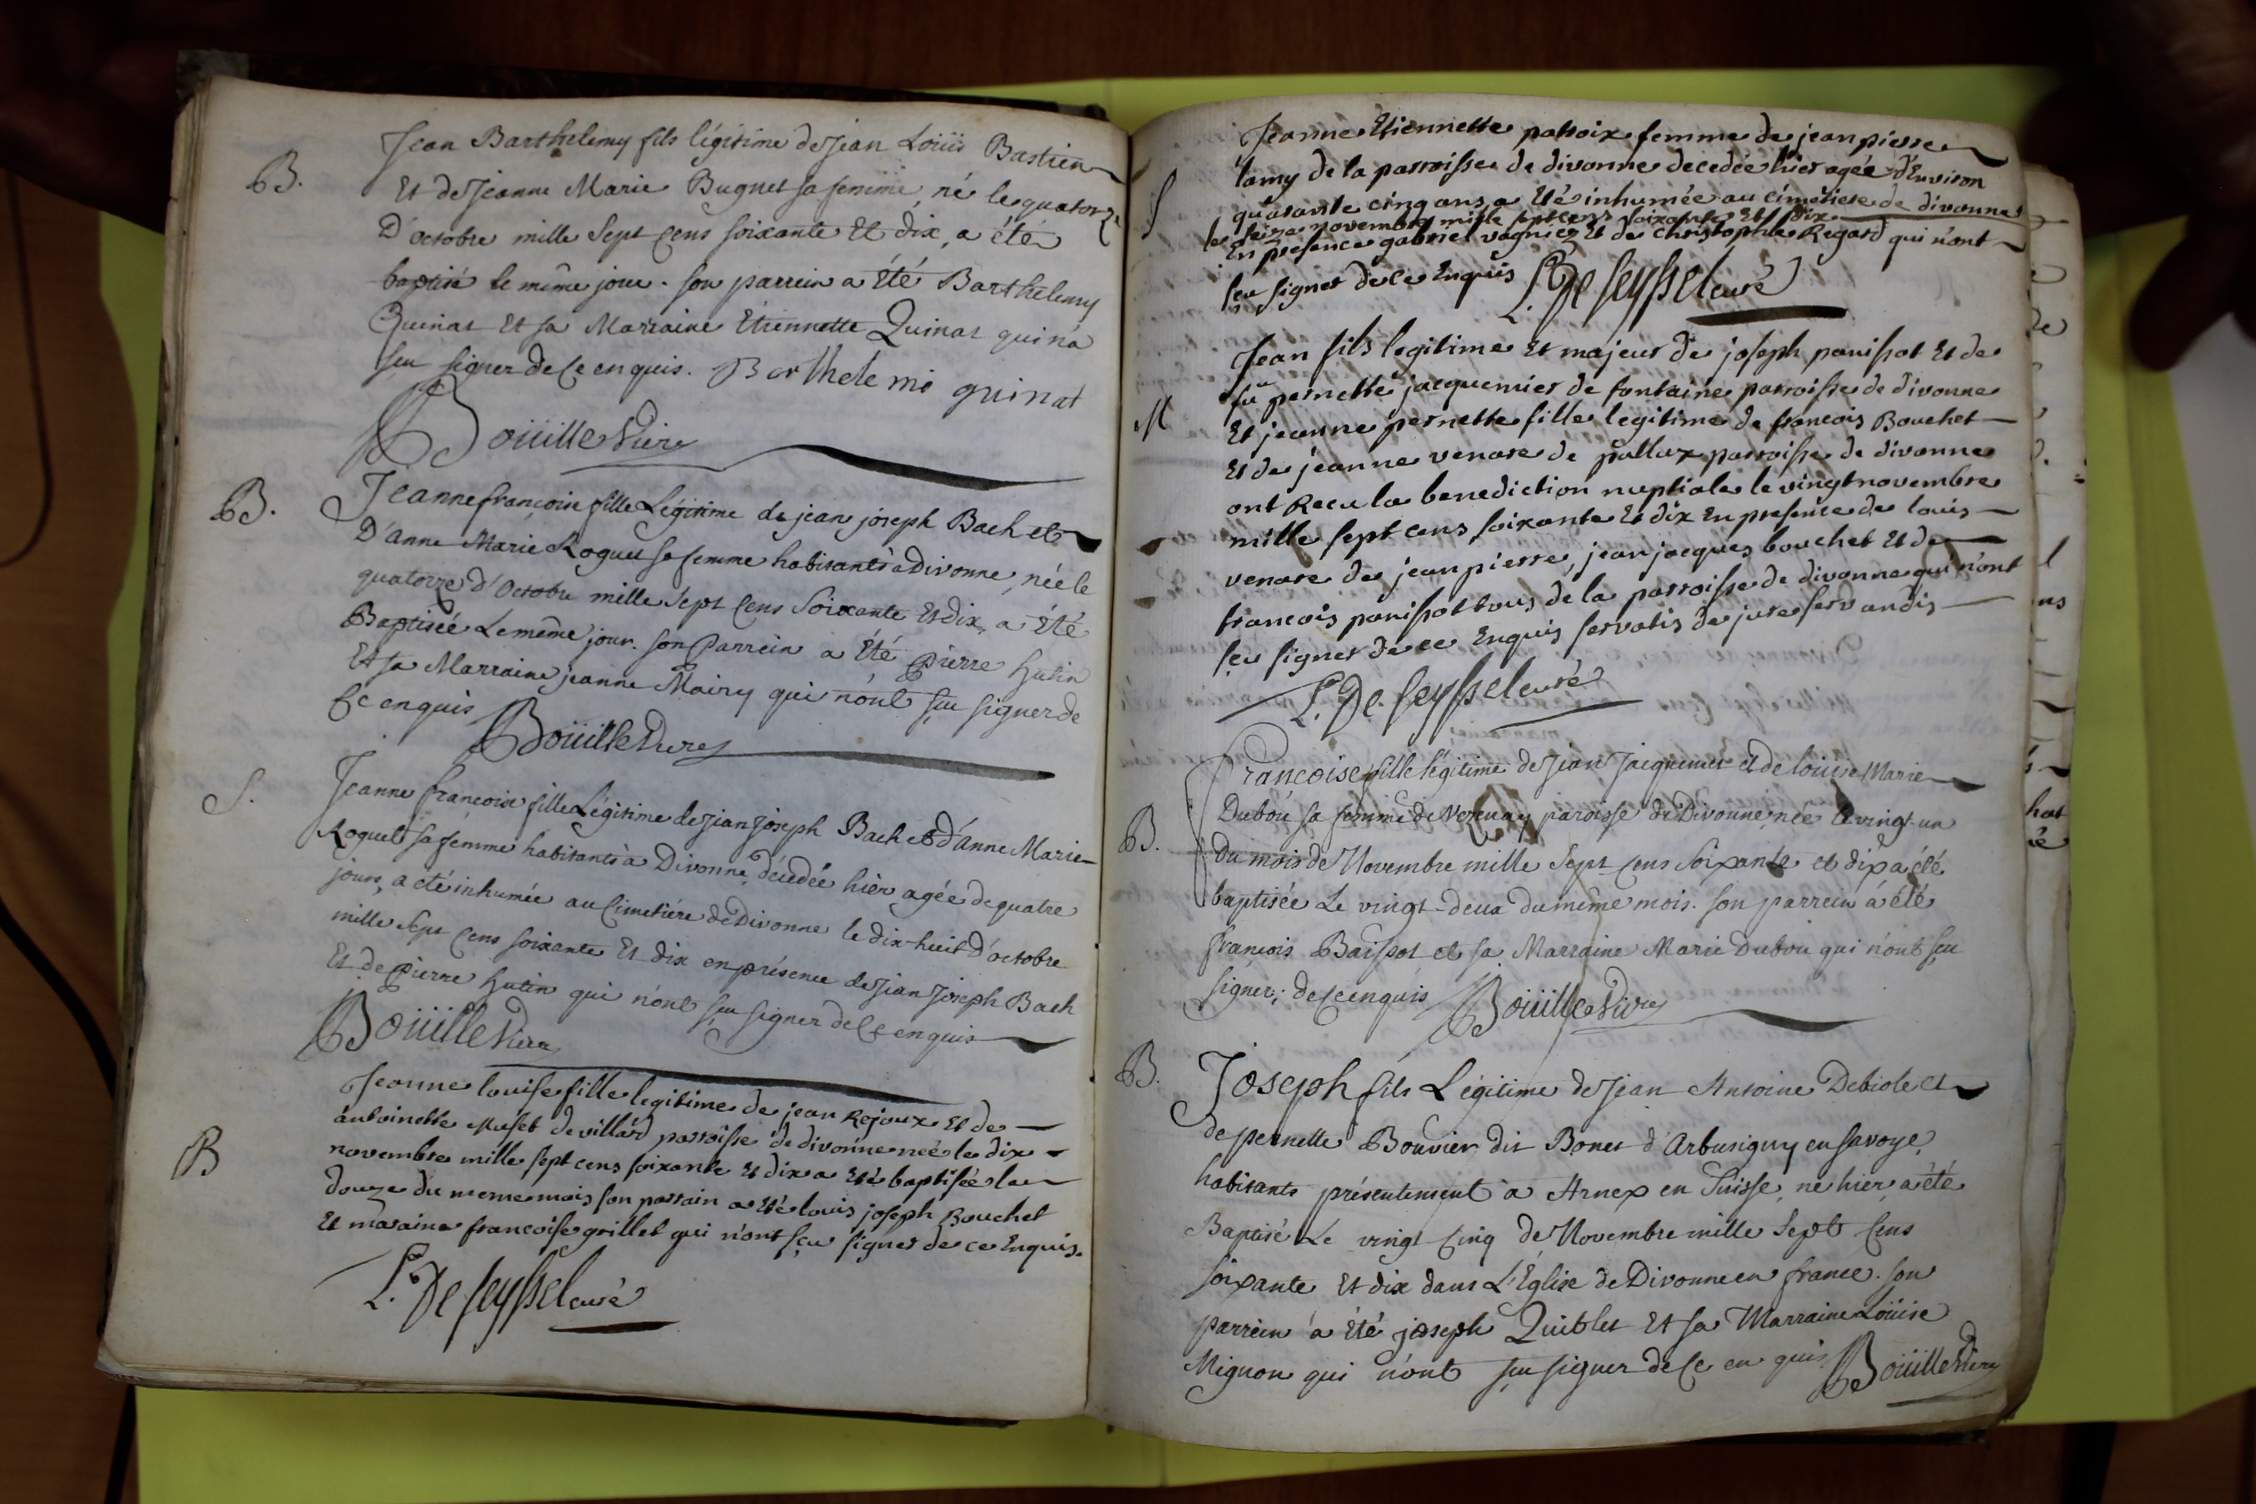 B.
Jean Barthelemy fils légitime de Jean Loüis Bastien
Et de Jeanne Marie Buquet sa femme, né le quatorze
D'octobre mille Sept Cens soixante Et dix, a été
baptisé le même jour. son parrein a Été Barthélemy
Quinat Et sa Marraine Étiennette Quinat qui n'a
sçu signer de Ce enquis. Barthelemi quinat
Boüille Vicre
B.
Jeanne françoise fille Légitime de jean joseph Bach et
D'anne Marie Roquet sa femme habitants à Divonne, née le
quatorze d'Octobre mille Sept Cens Soixante Et dix, a Été
Baptisée Le même jour. son Parrein a Été Pierre Hutin
Et sa Marraine jeanne Mairy qui n'ont sçu signer de
Ce enquis Boüille Vicre
S.
Jeanne francoise fille Légitime de Jean Joseph Bach et d'Anne Marie
Roquet sa femme habitants à Divonne, décédée hier, agée de quatre
jours, a été inhumée au Cimetiére de Divonne le dix-huit d'octobre
mille Sept Cens soixante Et dix en présence de Jean Joseph Bach
Et de Pierre Hutin qui n'ont sçu signer de Ce enquis
Boüille Vicre
B
Jeanne louise fille legitime de jean Rejoux Et de
antoinette Muset de villard parroisse de divonne née le dix
novembre mille sept cens soixante Et dix a Eté baptisée le
douze du meme mois son parrain a Eté louis joseph Bouchet
Et maraine francoise grillet qui n'ont sçu signer de ce Enquis.
L. De seyssel curé
S
Jeanne Etiennette parroix femme de jean pierre
lamy de la parroisse de divonne decedée hier agée d'Environ
quarante cinq ans, a Eté inhumée au cimetiere de divonne
le seize novembre mille sept cens soixante Et dix
En presence gabriel vagniez Et de christophle Regard qui n'ont
sçu signer de ce Enquis L. De seyssel curé
M
Jean fils legitime Et majeur de joseph panissot Et de
fû pernette jacquemier de fontaine parroisse de divonne
Et jeanne pernette fille legitime de francois Bouchet
Et de jeanne venare de pallux parroisse de divonne
ont Recu la benediction nuptiale le vingt novembre
mille sept cens soixante Et dix En presence de louis
venare de jean pierre, jean jacques bouchet Et de
francois panissot tous de la parroisse de divonne qui n'ont
sçu signer de ce Enquis servatis de jure servandis
L. De. seyssel curé
B.
Françoise fille légitime de Jean Jacquemier et de loüise Marie
Dubou sa femme de Vesenay paroisse de Divonne, née le vingt-un
du mois de Novembre mille Sept Cens Soixante et dix a été
baptisée Le vingt-deux du même mois. son parrein a été
françois Baissot et sa Marraine Marie Dubou qui n'ont sçu
signer, de Ce enquis Boüille Vicre
B.
Joseph fils Légitime de Jean Antoine Debiole et
de pernette Bouvier dit Bonet d'Arbusigny en savoye,
habitants présentement a Arnex en Suisse, né hier, a été
Baptisé Le vingt Cinq de Novembre mille Sept Cens
soixante Et dix dans L'Église de Divonne en france. son
parrein a Été joseph Quiblet Et sa Marraine Loüise
Mignon qui n'ont sçu signer de Ce en quis Boüille Vicre